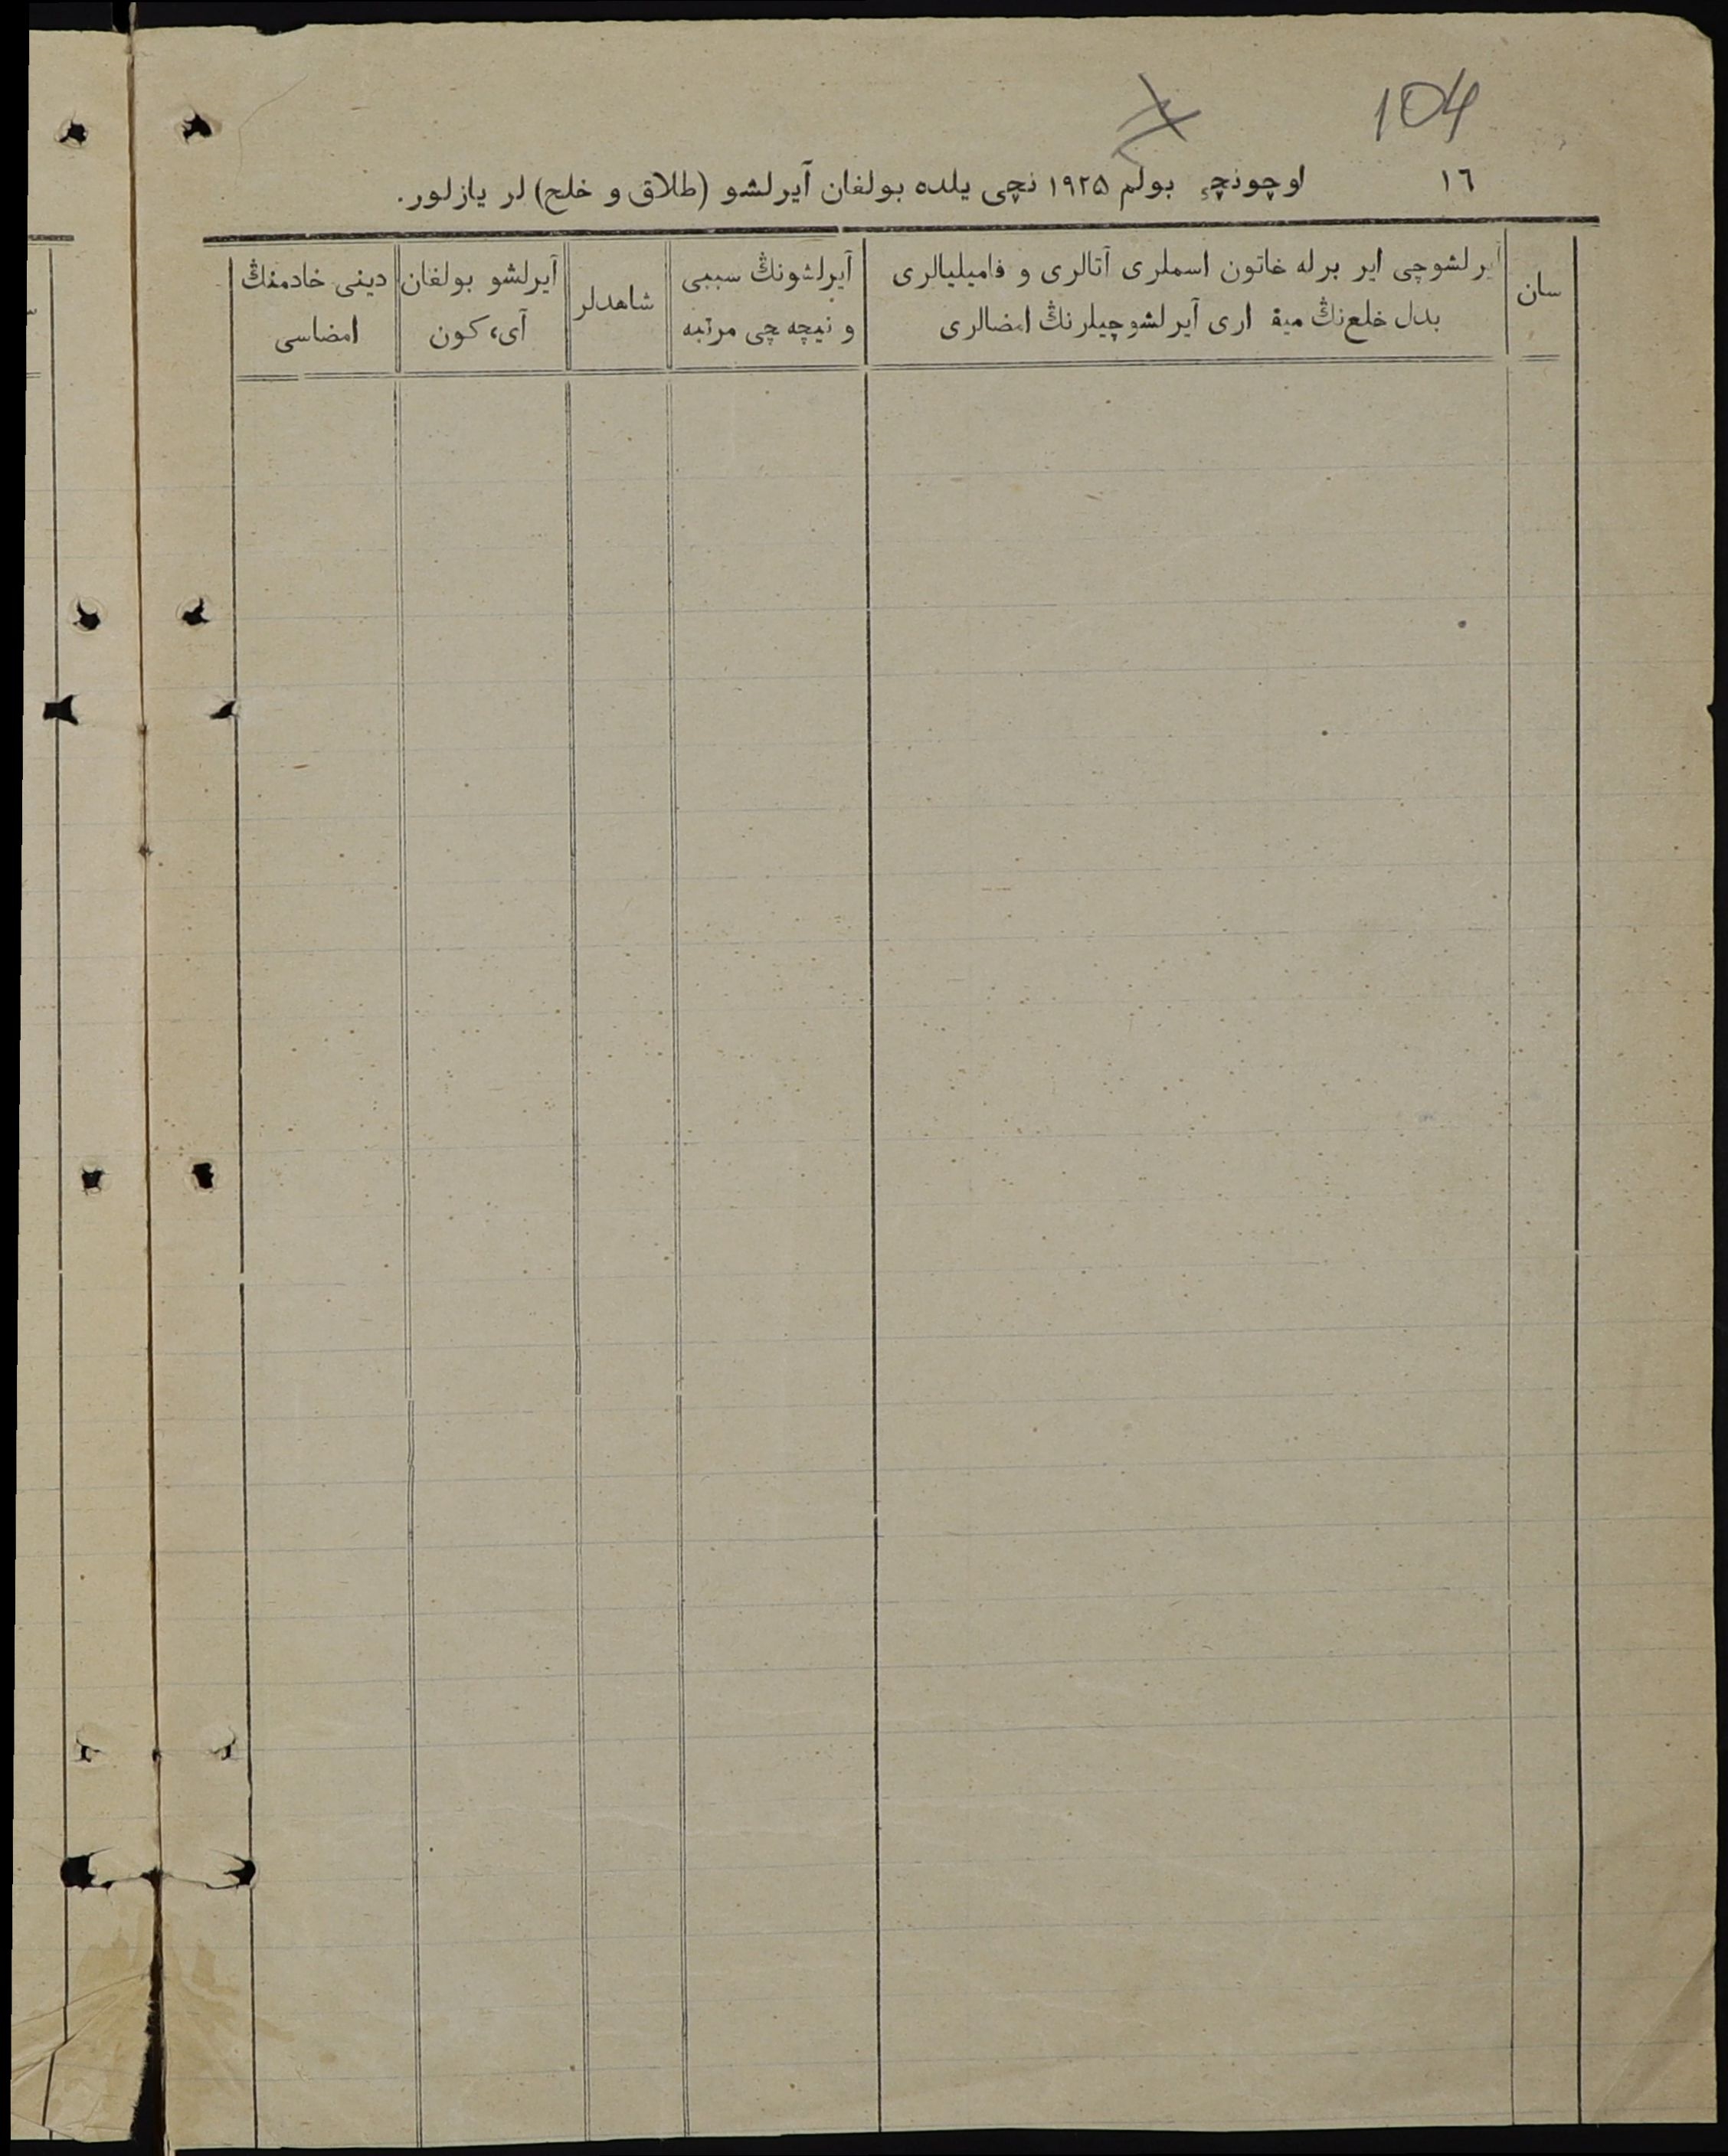 104
١٦
اوچونچی بولم ١٩٢۵ نچی يلده بولغان آيرلشو (طلاق و خلع) لر يازلور.
سان
آيرلشوچی اير برله خاتون اسملری آتالری و فاميليالری
بدل خلع‌نڭ میق‍ اری آيرلشوچيلرنڭ امضالری
آيرلشونڭ سببی
و نيچه چی مرتبه
شاهدلر
آيرلشو بولغان
آی، كون
دينی خادمنڭ
امضاسی